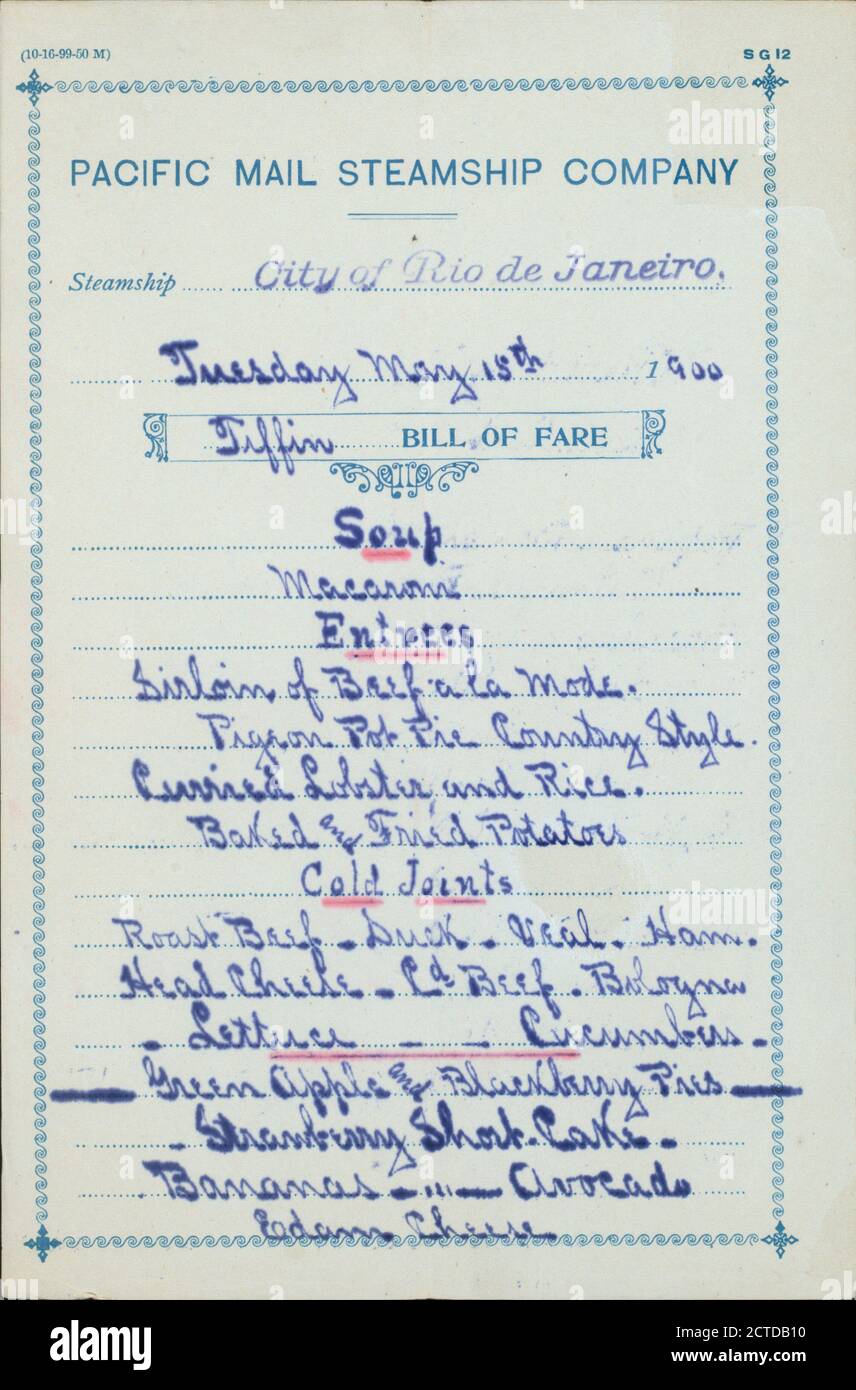 (10-16-99-50 M) SG12
PACIFIC MAIL STEAMSHIP COMPANY
Steamship City of Rio de Janeiro.
Tuesday May 15th 1900
Tiffin BILL OF FARE
Soup
Macaroni
Entrees
Sirloin of Beef a la Mode.
Pigeon Pot Pie Country Style.
Curried Lobster and Rice.
Baked and Fried Potatoes
Cold Joints
Roast Beef - Duck - Veal. Ham.
Head Cheese - Cd Beef. Bologna
- Lettuce - - Cucumbers -
Green Apple and Blackberry Pies
- Strawberry Short-Cake -
Bananas - " - Avocado
Edam Cheese
alamy
Image ID: 2CTDB10
www.alamy.com